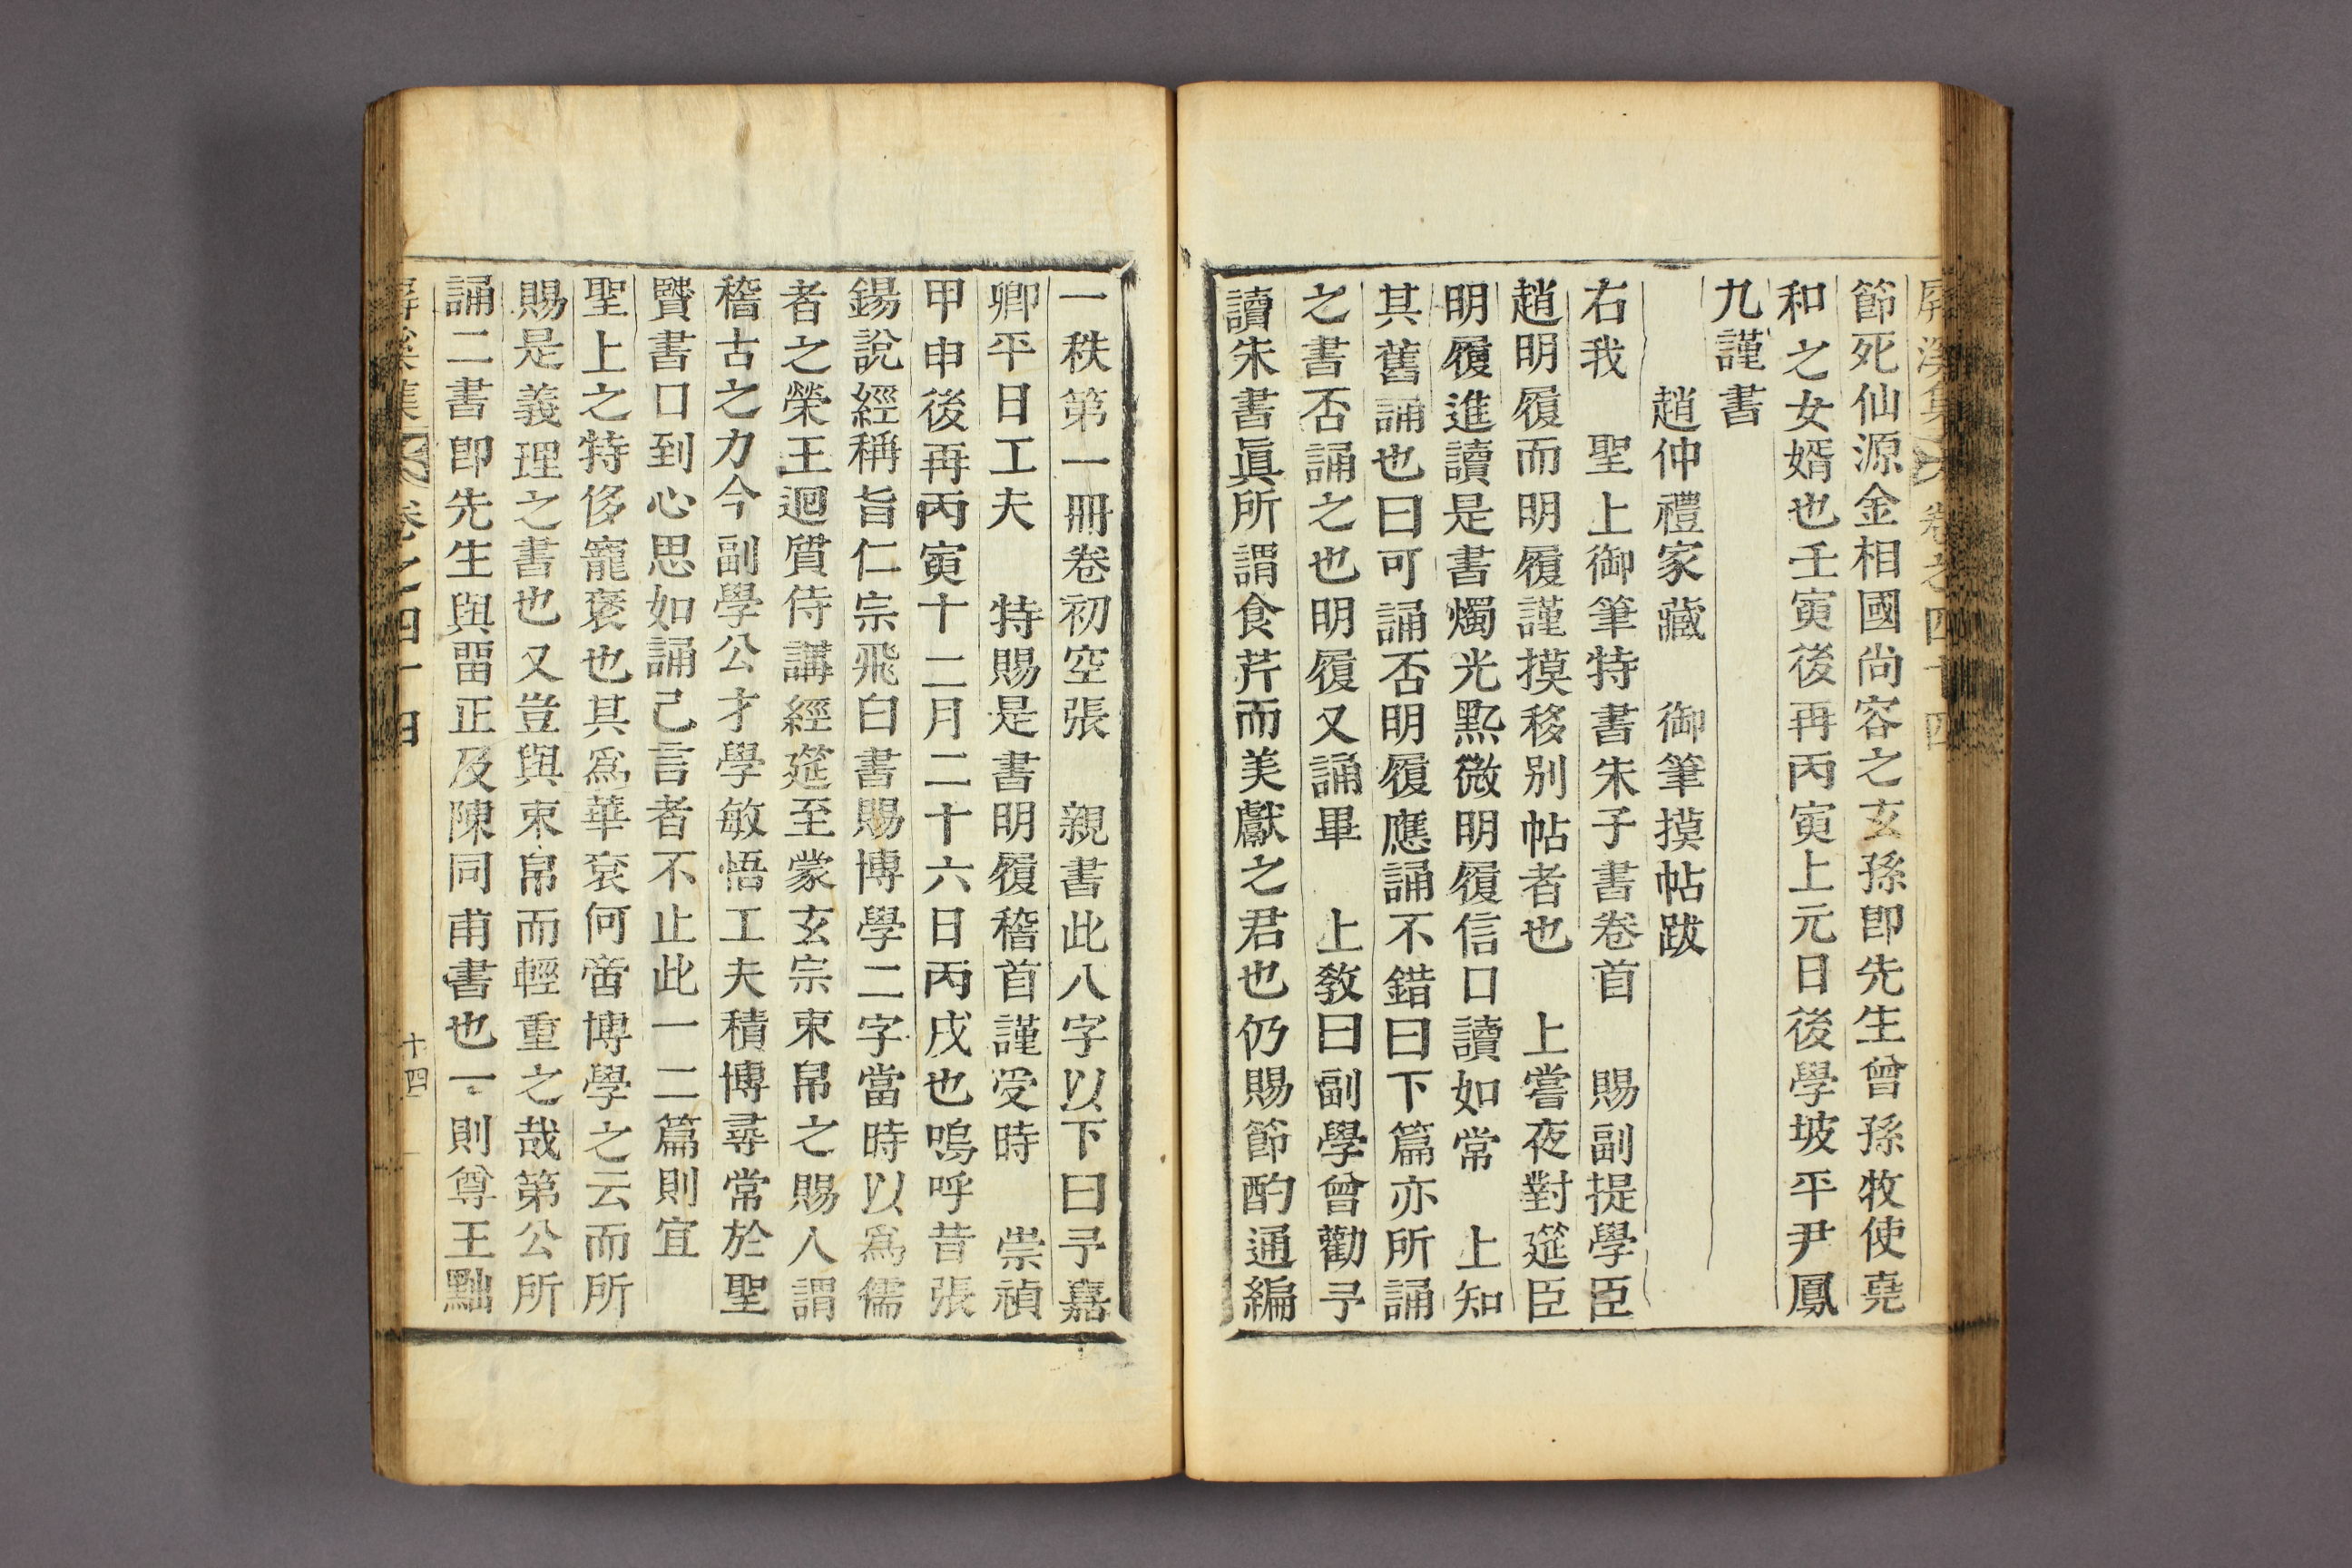 屛溪集 卷之四十四
節死仙源金相國尙容之玄孫卽先生曾孫牧使堯
和之女婿也壬寅後再丙寅上元日後學坡平尹鳳
九謹書
趙仲禮家藏 御筆摸帖跋
右我 聖上御筆特書朱子書卷首 賜副提學臣
趙明履而明履謹摸移別帖者也 上嘗夜對筵臣
明履進讀是書燭光㸃微明履信口讀如常 上知
其舊誦也曰可誦否明履應誦不錯曰下篇亦所誦
之書否誦之也明履又誦畢 上敎曰副學曾勸予
讀朱書眞所謂食芹而美獻之君也仍賜節酌通編
一秩第一冊卷初空張 親書此八字以下曰予嘉
卿平日工夫 特賜是書明履稽首謹受時 崇禎
甲申後再丙寅十二月二十六日丙戌也嗚呼昔張
錫說經稱旨仁宗飛白書賜博學二字當時以爲儒
者之榮王迴質侍講經筵至蒙玄宗束帛之賜人謂
稽古之力今副學公才學敏悟工夫積博尋常於聖
賢書口到心思如誦己言者不止此一二篇則宜
聖上之特侈寵褒也其爲華袞何啻博學之云而所
賜是義理之書也又豈與束帛而輕重之哉第公所
誦二書卽先生與畱正及陳同甫書也一則尊王黜
屛溪集 卷之四十四 十四